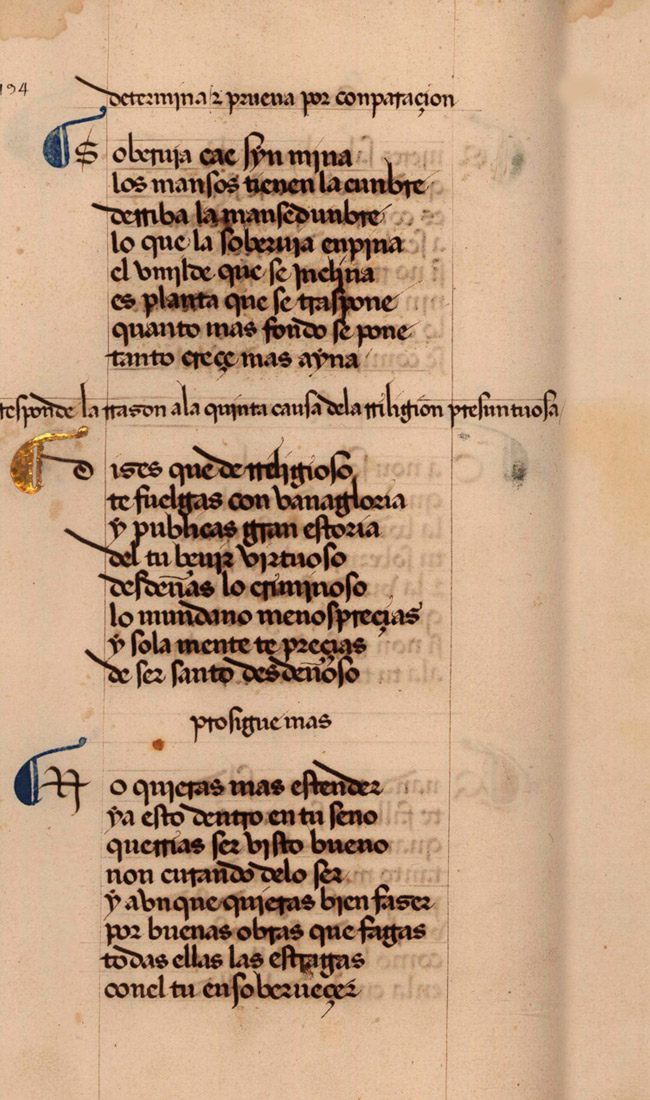 194
determina & prueua por conparaçion
Soberuia cae syn mina
los mansos tienen la cunbre
derriba la mansedunbre
lo que la soberuia enpina
el vmilde que se inclina
es planta que se traspone
quanto mas fondo se pone
tanto creçe mas ayna
responde la rrason a la quinta causa dela rriligion presuntuosa
Dises que de rreligioso
te fuelgas con vanagloria
y publicas gran estoria
del tu beuir virtuoso
desdeñas lo criminoso
lo mundano menospreçias
y sola mente te preçias
de ser santo desdeñoso
prosigue mas
No quieras mas estender
ya esto dentro en tu seno
querrias ser visto bueno
non curando delo ser
y avn que quieras bien faser
por buenas obras que fagas
todas ellas las estragas
conel tu ensoberueçer